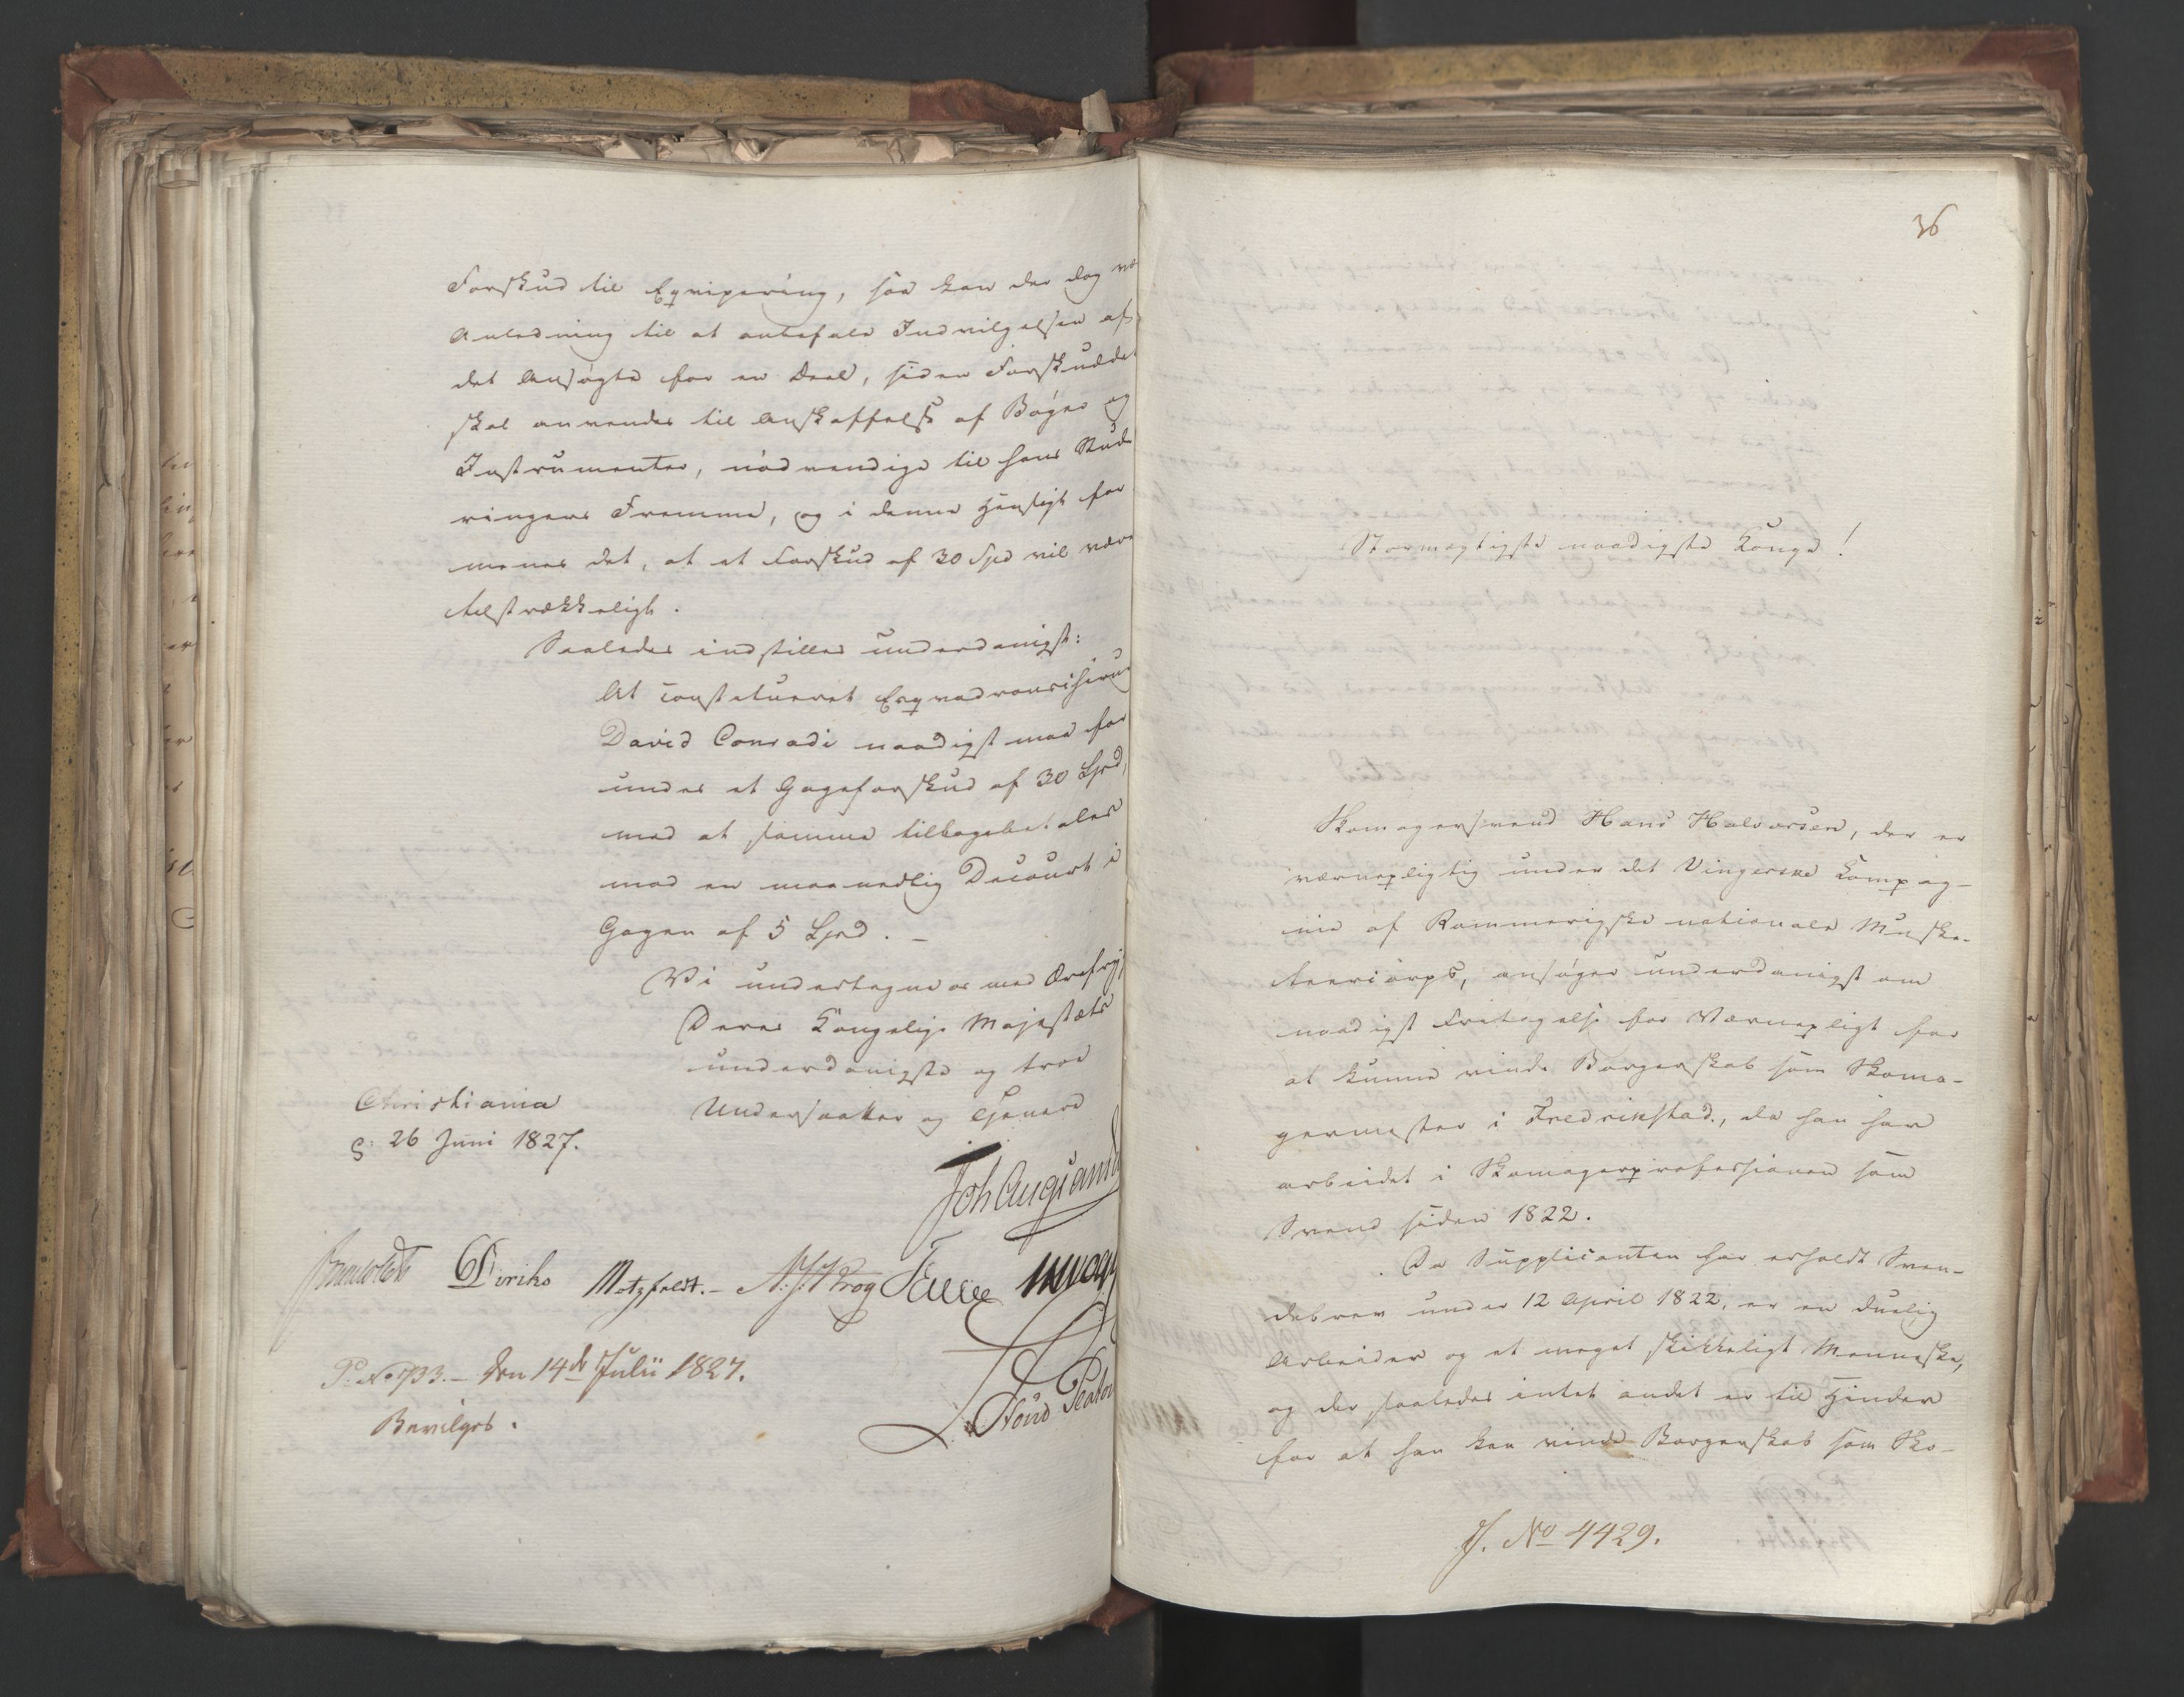 Forskud til Eqvipering, saa kan der dog væ
Anledning til at anbefale Indvilgelsen af
det Ansøgte for en Deel, siden Forskuddet
skal anvendes til Anskaffelse af Bøger og
Instrumenter, nödvendige til hans Stude
ringers Fremme, og i denne Hensigt for
menes det, at et Forskud af 30 Spd vil være
tilstrækkeligt.
Saaledes indstilles underdanigst:
At constitueret Esqvadronschirur
David Conradi naadigst maa for
undes et Gageforskud af 30 Spd,
mod at samme tilbagebetales
med en maanedlig Decourt i
Gagen af 5 Spd. -
Vi undertegne os med Ærefrygt
Deres Kongelige Majestæts
underdanigste og troe
Undersaatter og Tjenere
Christiania
d: 26 Juni 1827.
Joh Aug Sand
Diriks Motzfeldt. - N. J. Krog Fasting
P. No 793. - den 14de Julii 1827.
Bevilget.
36
Stormægtigste naadigste Konge!
Skomagersvend Hans Halvorsen, der er
værnepligtig under det Vingerske Kompag-
nie af Rommerigske nationale Muske-
teercorps, ansøger underdanigst om
naadigst Fritagelse for Værnepligt for
at kunne vinde Borgerskab som Skoma-
germester i Fredrikstad, da han har
arbeidet i Skomagerprofessionen som
Svend siden 1822.
Da Supplicanten har erholdt Sven-
debrev under 12 April 1822, er en duelig
Arbeider og et meget skikkeligt Menneske,
og der saaledes intet andet er til Hinder
for at han kan vinde Borgerskab som Sko-
J. No 4429.